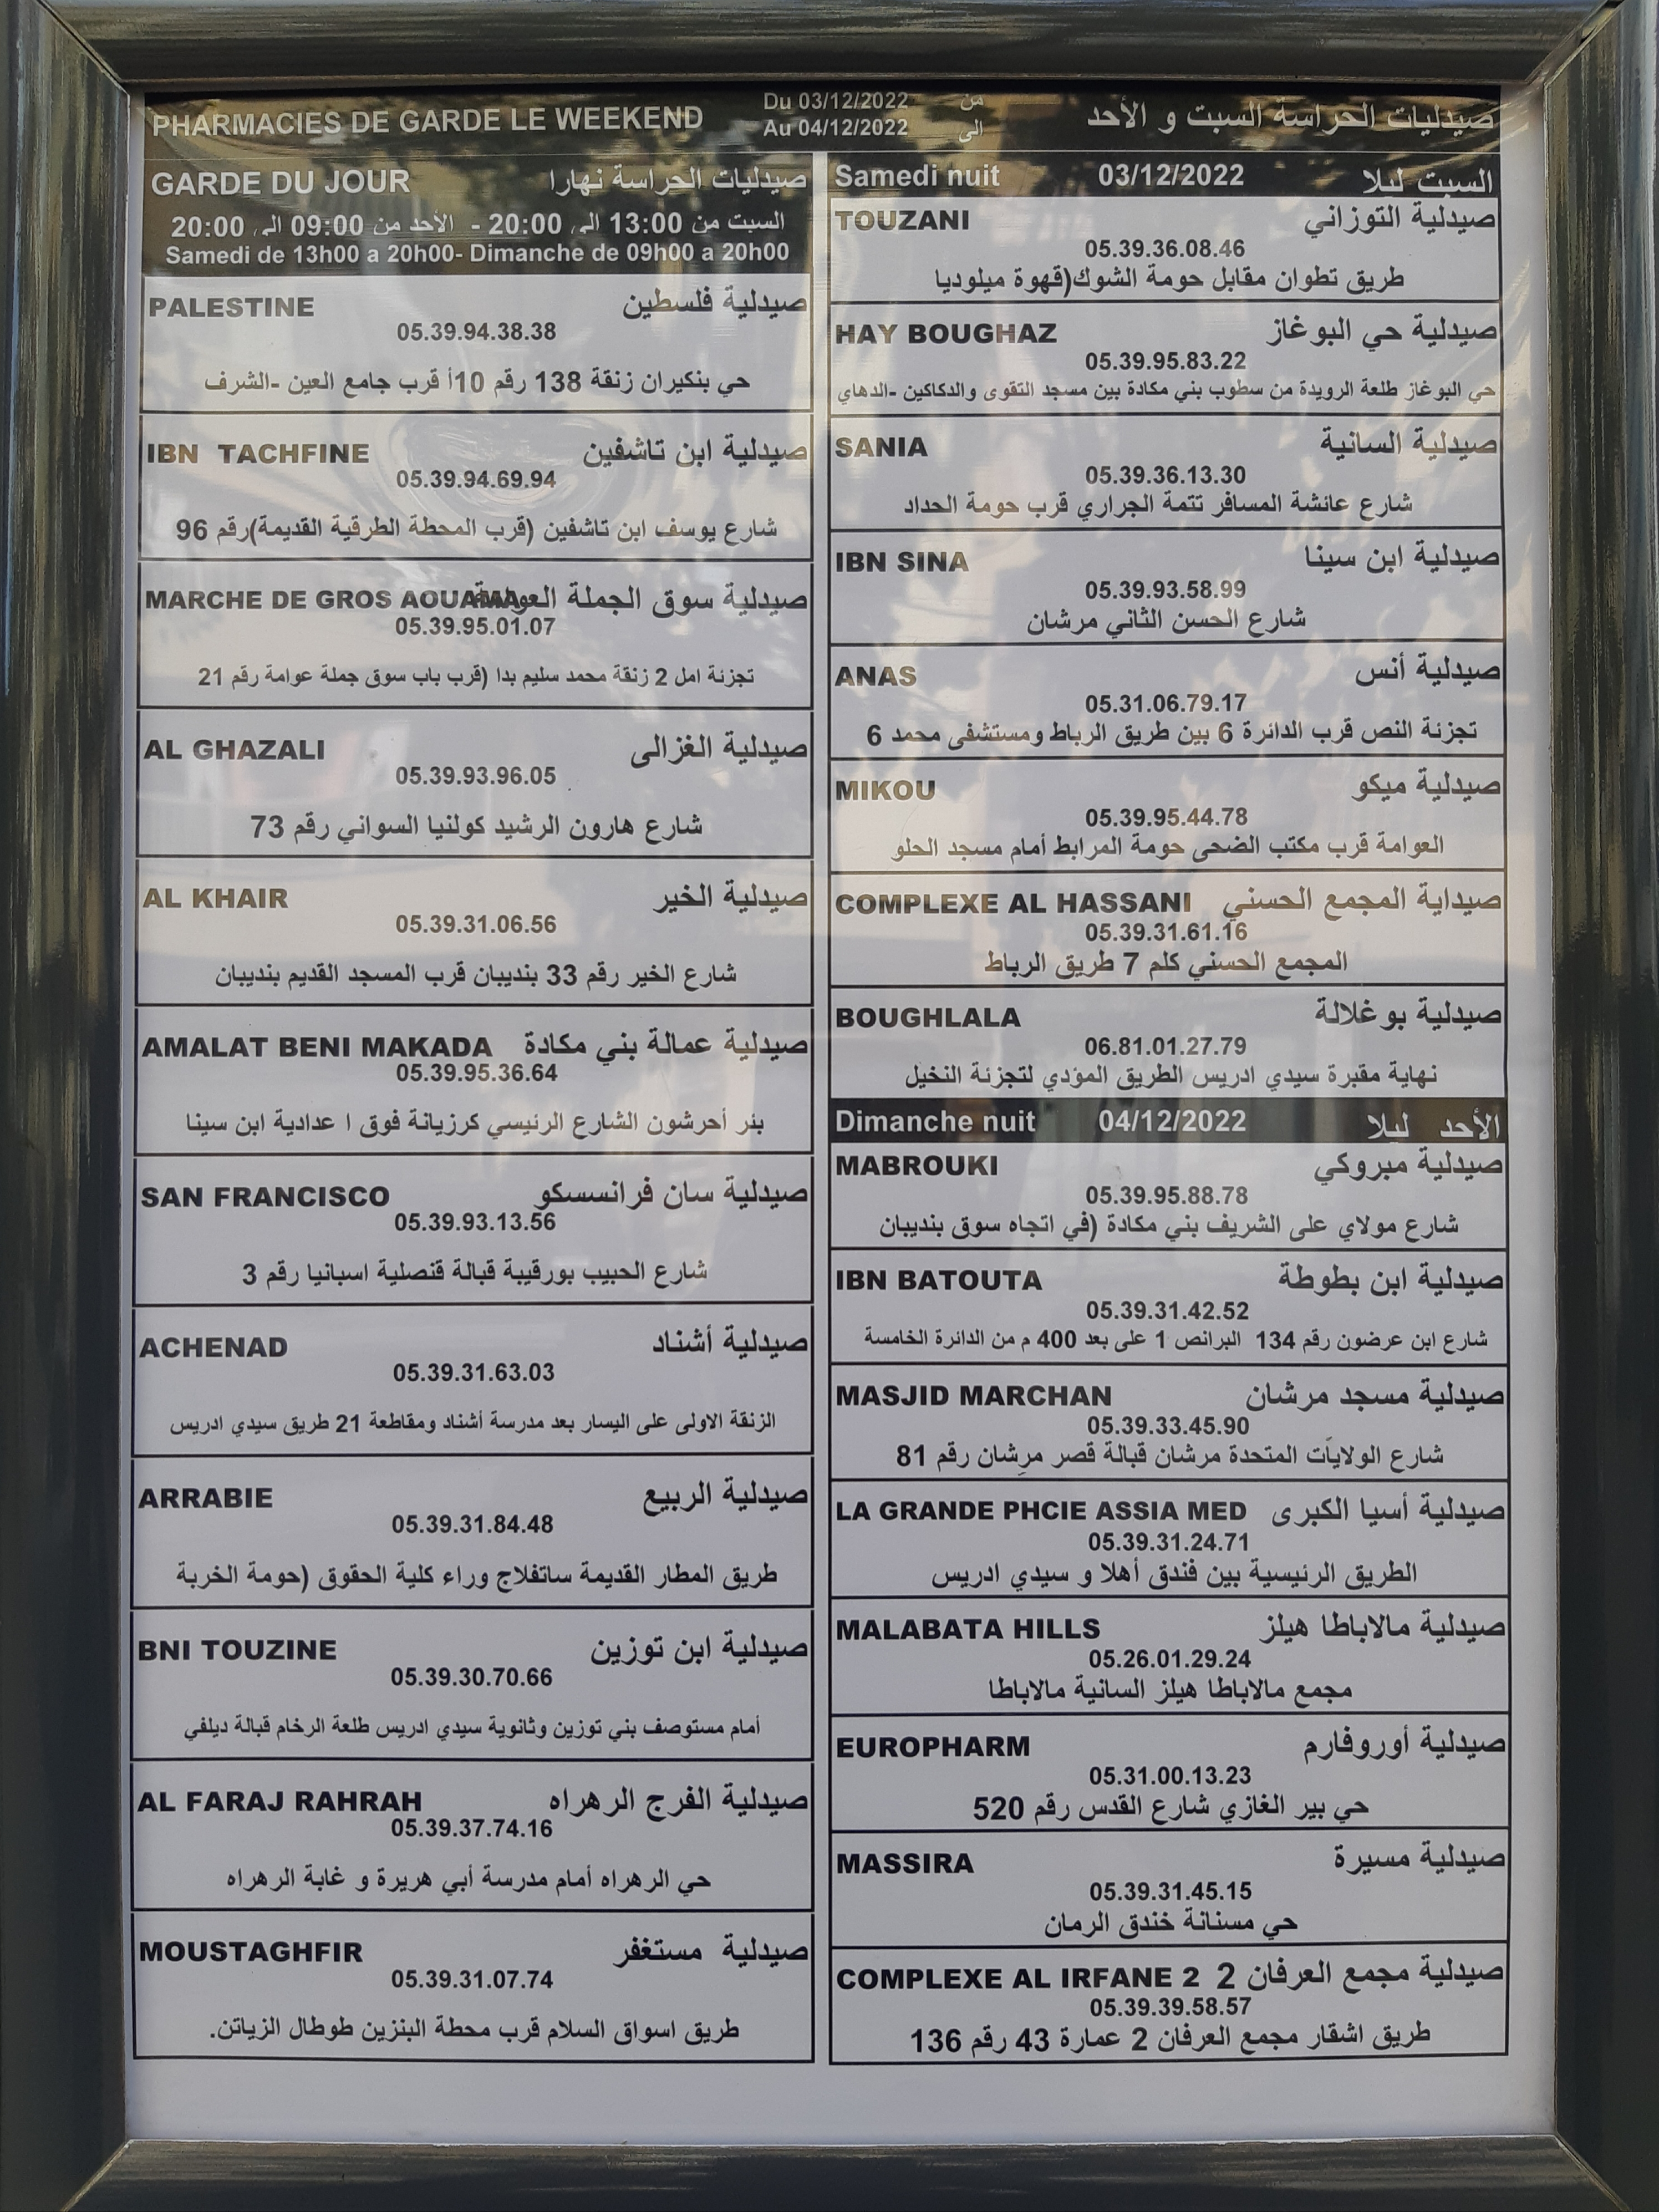 PHARMACIES DE GARDE LE WEEKEND Du 03/12/2022 من صيدليات الحراسة السبت و الأحد
Au 04/12/2022 الى
GARDE DU JOUR صيدليات الحراسة نهارا
السبت من 13:00 الى 20:00 - الأحد من 09:00 الى 20:00
Samedi de 13h00 a 20h00- Dimanche de 09h00 a 20h00
PALESTINE صيدلية فلسطين
05.39.94.38.38
حي بنكيران زنقة 138 رقم 10أ قرب جامع العين -الشرف
IBN TACHFINE صيدلية ابن تاشفين
05.39.94.69.94
شارع يوسف ابن تاشفين (قرب المحطة الطرقية القديمة)رقم 96
MARCHE DE GROS AOUAMA صيدلية سوق الجملة العوامة
05.39.95.01.07
تجزئة امل 2 زنقة محمد سليم بدا (قرب باب سوق جملة عوامة رقم 21
AL GHAZALI صيدلية الغزالى
05.39.93.96.05
شارع هارون الرشيد كولنيا السواني رقم 73
AL KHAIR صيدلية الخير
05.39.31.06.56
شارع الخير رقم 33 بنديبان قرب المسجد القديم بنديبان
AMALAT BENI MAKADA صيدلية عمالة بني مكادة
05.39.95.36.64
بئر أحرشون الشارع الرئيسي كرزيانة فوق ا عدادية ابن سينا
SAN FRANCISCO صيدلية سان فرانسسكو
05.39.93.13.56
شارع الحبيب بورقيبة قبالة قنصلية اسبانيا رقم 3
ACHENAD صيدلية أشناد
05.39.31.63.03
الزنقة الاولى على اليسار بعد مدرسة أشناد ومقاطعة 21 طريق سيدي ادريس
ARRABIE صيدلية الربيع
05.39.31.84.48
طريق المطار القديمة ساتفلاج وراء كلية الحقوق (حومة الخربة
BNI TOUZINE صيدلية ابن توزين
05.39.30.70.66
أمام مستوصف بني توزين وثانوية سيدي ادريس طلعة الرخام قبالة ديلفي
AL FARAJ RAHRAH صيدلية الفرج الرهراه
05.39.37.74.16
حي الرهراه أمام مدرسة أبي هريرة و غابة الرهراه
MOUSTAGHFIR صيدلية مستغفر
05.39.31.07.74
طريق اسواق السلام قرب محطة البنزين طوطال الزياتن.
Samedi nuit 03/12/2022 السبت ليلا
TOUZANI صيدلية التوزاني
05.39.36.08.46
طريق تطوان مقابل حومة الشوك(قهوة ميلوديا
HAY BOUGHAZ صيدلية حي البوغاز
05.39.95.83.22
حي البوغاز طلعة الرويدة من سطوب بني مكادة بين مسجد التقوى والدكاكين -الدهاي
SANIA صيدلية السانية
05.39.36.13.30
شارع عائشة المسافر تتمة الجراري قرب حومة الحداد
IBN SINA صيدلية ابن سينا
05.39.93.58.99
شارع الحسن الثاني مرشان
ANAS صيدلية أنس
05.31.06.79.17
تجزئة النص قرب الدائرة 6 بين طريق الرباط ومستشفى محمد 6
MIKOU صيدلية ميكو
05.39.95.44.78
العوامة قرب مكتب الضحى حومة المرابط أمام مسجد الحلو
COMPLEXE AL HASSANI صيداية المجمع الحسني
05.39.31.61.16
المجمع الحسني كلم 7 طريق الرباط
BOUGHLALA صيدلية بوغلالة
06.81.01.27.79
نهاية مقبرة سيدي ادريس الطريق المؤدي لتجزئة النخيل
Dimanche nuit 04/12/2022 الأحد ليلا
MABROUKI صيدلية مبروكي
05.39.95.88.78
شارع مولاي على الشريف بني مكادة (في اتجاه سوق بنديبان
IBN BATOUTA صيدلية ابن بطوطة
05.39.31.42.52
شارع ابن عرضون رقم 134 البرانص 1 على بعد 400 م من الدائرة الخامسة
MASJID MARCHAN صيدلية مسجد مرشان
05.39.33.45.90
شارع الولايَات المتحدة مرشان قبالة قصر مرِشان رقم 81
LA GRANDE PHCIE ASSIA MED صيدلية أسيا الكبرى
05.39.31.24.71
الطريق الرئيسية بين فندق أهلا و سيدي ادريس
MALABATA HILLS صيدلية مالاباطا هيلز
05.26.01.29.24
مجمع مالاباطا هيلز السانية مالاباطا
EUROPHARM صيدلية أوروفارم
05.31.00.13.23
حي بير الغازي شارع القدس رقم 520
MASSIRA صيدلية مسيرة
05.39.31.45.15
حي مسنانة خندق الرمان
COMPLEXE AL IRFANE 2 صيدلية مجمع العرفان 2
05.39.39.58.57
طريق اشقار مجمع العرفان 2 عمارة 43 رقم 136